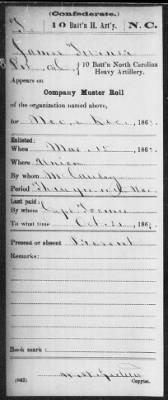 (Confederate.)
10 Batt'n H. Art'y. N.C.
James Turner
10 Batt'n North Carolina
Heavy Artillery.
Appears on
Company Muster Roll
of the organization named above,
for Nov. & Dec., 186
Enlisted:
When Mar. 186
Where Union
By whom
Period
Last paid:
By whom Capt.
To what time Oct. 31, 186
Present or absent Present
Remarks:
Book mark:
(642)
Copyist.